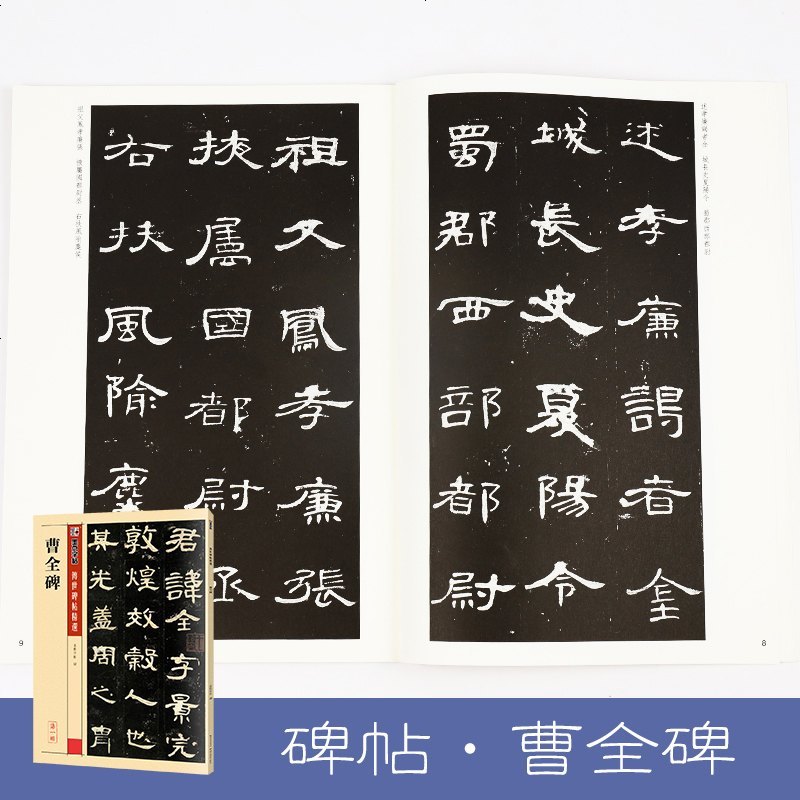 述孝廉謁者金　城長史夏陽令　蜀郡西部都尉
述孝廉謁者金
城長史夏陽令
蜀郡西部都尉
8
祖父鳳孝廉張
掖屬國都尉丞
右扶風隃麋
祖父鳳孝廉張　掖屬國都尉丞　右扶風隃麋侯
9
君諱全字景完
敦煌效穀人也
其先蓋周之胄
傳世碑帖精選
曹全碑
第一輯
碑帖·曹全碑